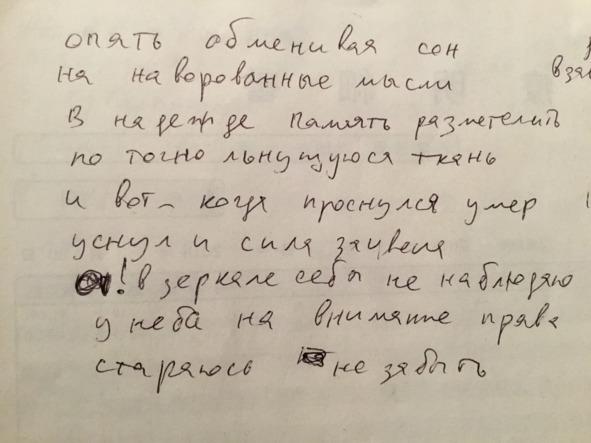 опять обменивая сон
на наворованные мысли взя
в надежде память разметелить
по точно льнущуюся ткань
и вот – когда проснулся умер
уснул и сила зацвела
! в зеркале себы не наблюдаю
у неба на внимание права
стараюсь не забыть